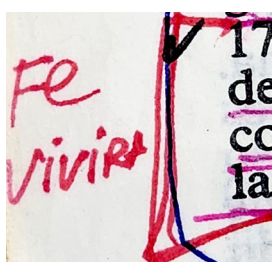 Fe
vivirá
17
de
co
la